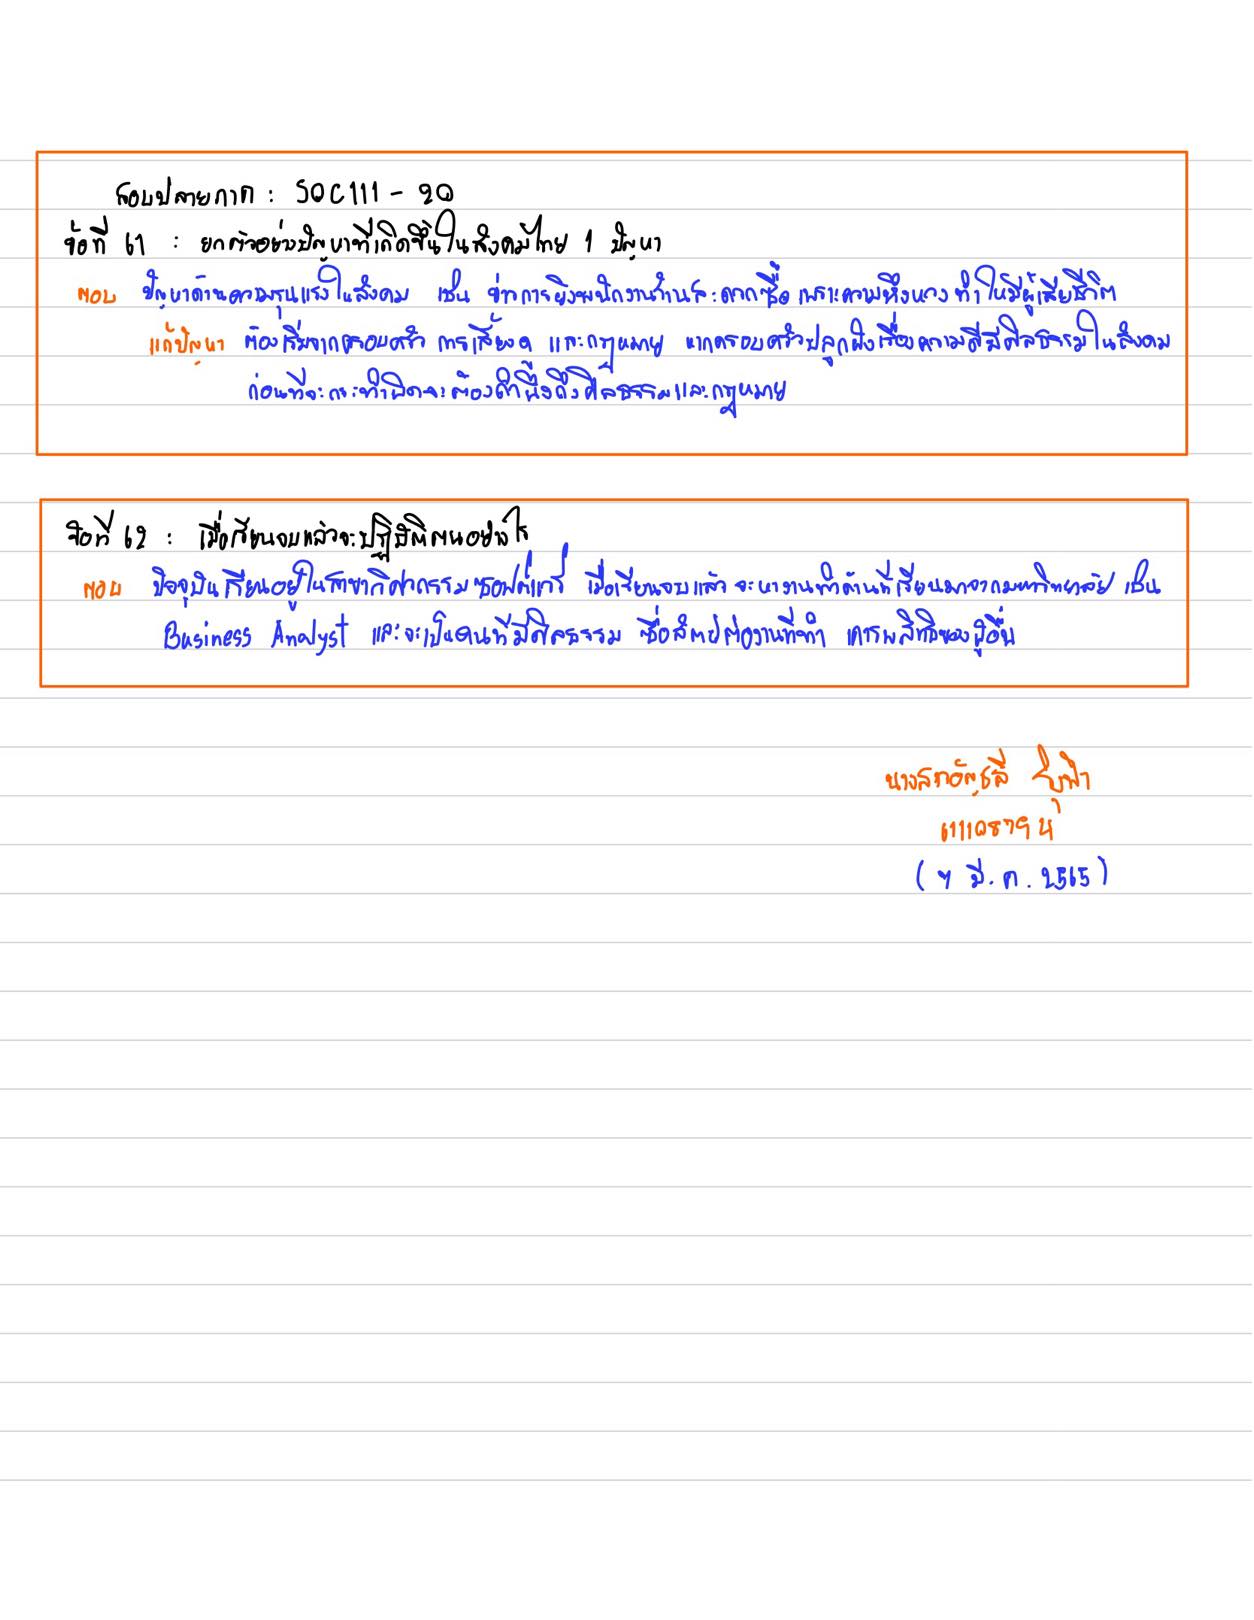 สอบปลายภาค : SOC111 - 20
ข้อที่ 61 : ยกตัวอย่างปัญหาที่เกิดขึ้นในสังคมไทย 1 ปัญหา
ตอบ ปัญหาด้านความรุนแรงในสังคม เช่น ข่าวการยิงพนักงานร้านสะดวกซื้อ เพราะความหึงหวง ทำให้มีผู้เสียชีวิต
แก้ปัญหา ต้องเริ่มจากครอบครัว การเลี้ยงดู และกฎหมาย หากครอบครัวปลูกฝังเรื่องความดีมีศีลธรรมในสังคม
ก่อนที่จะกระทำผิดจะต้องคำนึงถึงศีลธรรมและกฎหมาย
ข้อที่ 62 : เมื่อเรียนจบแล้วจะปฏิบัติตนอย่างไร
ตอบ ปัจจุบันเรียนอยู่ในสาขาวิศวกรรมซอฟต์แวร์ เมื่อเรียนจบแล้ว จะหางานทำด้านที่เรียนมาจากมหาวิทยาลัย เช่น
Business Analyst และจะเป็นคนที่มีศีลธรรม ซื่อสัตย์ต่องานที่ทำ เคารพสิทธิของผู้อื่น
นางสาว
(4 มี.ค. 2565)